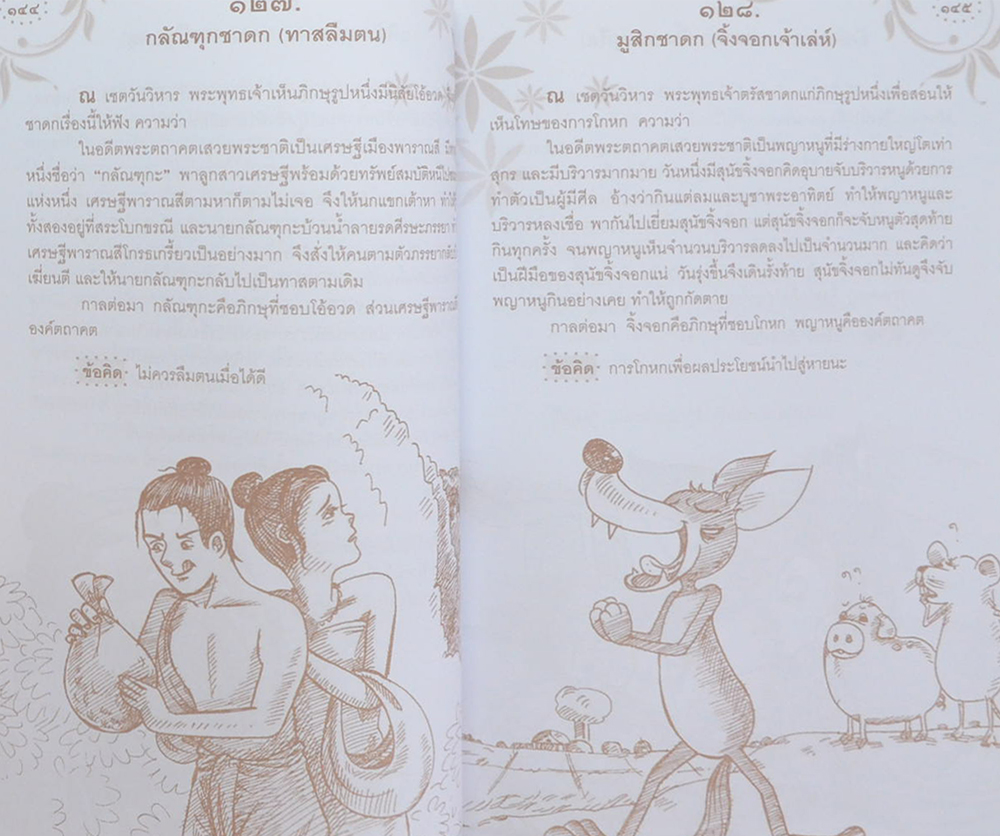 ๑๔๔
๑๒๗.
กลัณฑุกชาดก (ทาสลืมตน)
ณ เชตวันวิหาร พระพุทธเจ้าเห็นภิกษุรูปหนึ่งมีนิสัยโอ้อวด
ชาดกเรื่องนี้ให้ฟัง ความว่า
ในอดีตพระตถาคตเสวยพระชาติเป็นเศรษฐีเมืองพาราณสี
หนึ่งชื่อว่า “กลัณฑุกะ” พาลูกสาวเศรษฐีพร้อมด้วยทรัพย์สมบัติหนีไป
แห่งหนึ่ง เศรษฐีพาราณสีตามหาก็ตามไม่เจอ จึงให้นกแขกเต้าหา
ทั้งสองอยู่ที่สระโบกขรณี และนายกลัณฑุกะบ้วนน้ำลายรดศีรษะภรรยา
เศรษฐีพาราณสีโกรธเกรี้ยวเป็นอย่างมาก จึงสั่งให้คนตามตัวภรรยา
เฆี่ยนตี และให้นายกลัณฑุกะกลับไปเป็นทาสตามเดิม
กาลต่อมา กลัณฑุกะคือภิกษุที่ชอบโอ้อวด ส่วนเศรษฐีพาราณสี
องค์ตถาคต
ข้อคิด ไม่ควรลืมตนเมื่อได้ดี
๑๔๕
๑๒๘.
มูสิกชาดก (จิ้งจอกเจ้าเล่ห์)
ณ เชตวันวิหาร พระพุทธเจ้าตรัสชาดกแก่ภิกษุรูปหนึ่งเพื่อสอนให้
เห็นโทษของการโกหก ความว่า
ในอดีตพระตถาคตเสวยพระชาติเป็นพญาหนูที่มีร่างกายใหญ่โตเท่า
สุกร และมีบริวารมากมาย วันหนึ่งมีสุนัขจิ้งจอกคิดอุบายจับบริวารหนูด้วยการ
ทำตัวเป็นผู้มีศีล อ้างว่ากินแต่ลมและบูชาพระอาทิตย์ ทำให้พญาหนูและ
บริวารหลงเชื่อ พากันไปเยี่ยมสุนัขจิ้งจอก แต่สุนัขจิ้งจอกก็จะจับหนูตัวสุดท้าย
กินทุกครั้ง จนพญาหนูเห็นจำนวนบริวารลดลงไปเป็นจำนวนมาก และคิดว่า
เป็นฝีมือของสุนัขจิ้งจอกแน่ วันรุ่งขึ้นจึงเดินรั้งท้าย สุนัขจิ้งจอกไม่ทันดูจึงจับ
พญาหนูกินอย่างเคย ทำให้ถูกกัดตาย
กาลต่อมา จิ้งจอกคือภิกษุที่ชอบโกหก พญาหนูคือองค์ตถาคต
ข้อคิด การโกหกเพื่อผลประโยชน์นำไปสู่หายนะ